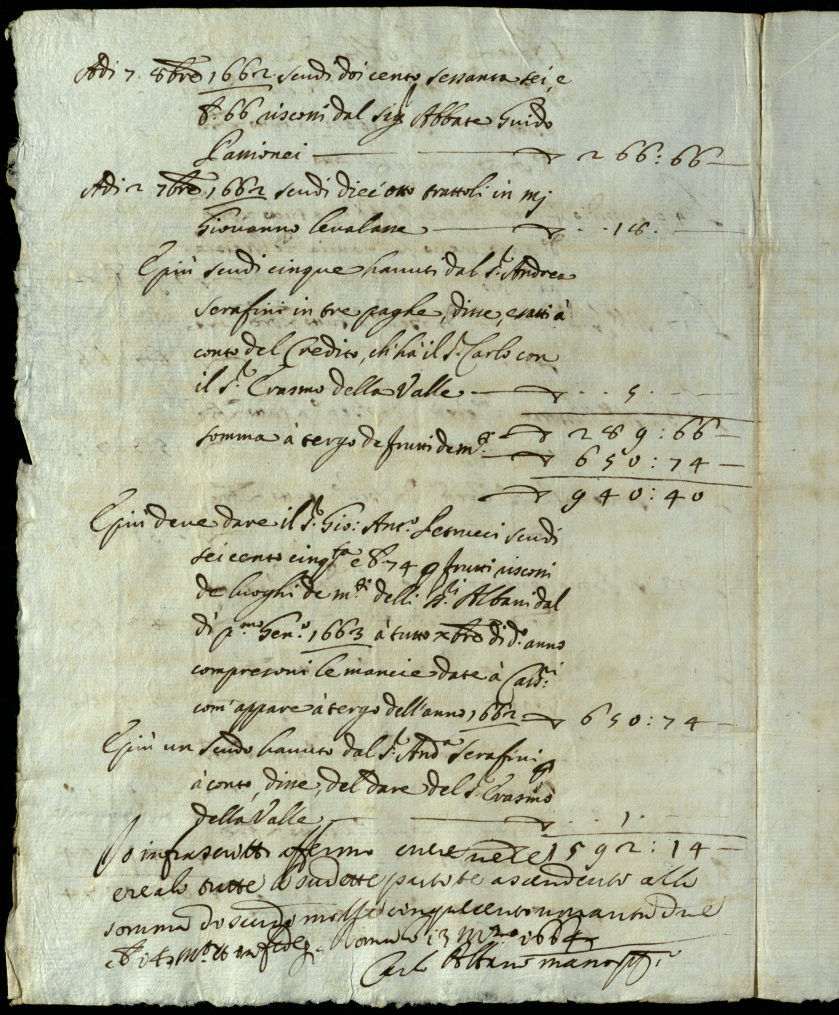 Adi 7. 8bre 1662 scudi doi cento sessanta sei, e
b. 66 riscossi dal sig.r Abbate Guido
Passionei 266:66
Adi 2 7bre 1662 scudi dieciotto trattoli in mj
Giovanno 18.
E più scudi cinque havuti dal S.r Andrea
Serafini in tre paghe, disse, esatti à
conto del Credito, ch'hà il S.r Carlo con
il S.r Erasmo della Valle 5
289:66
somma à tergo de frutti de m.ti 650:74
940:40
E più deve dare il S.r Gio: Ant.o Petrucci scudi
sei cento cinq.ta e b. 74 p frutti riscossi
de luoghi de m.ti delli SS.ri Albani dal
dì p.mo Gen.o 1663 à tutto xbre di d.o anno
compresoni le mancie date à
com' appare à tergo dell'anno 1662 650:74
E più un scudo havuto dal S.r And.a Serafini
à conto, disse, del dare del S.r Erasmo
della Valle 1
Io infrascritto affermo essere vere 1592:14
e reale tutte le sudette partite ascendente alla
somma di scudi mille cinquecento novanta due
e b. 14 m.ta et in fede Roma 13 1664
Carlo Albani mano pp.a